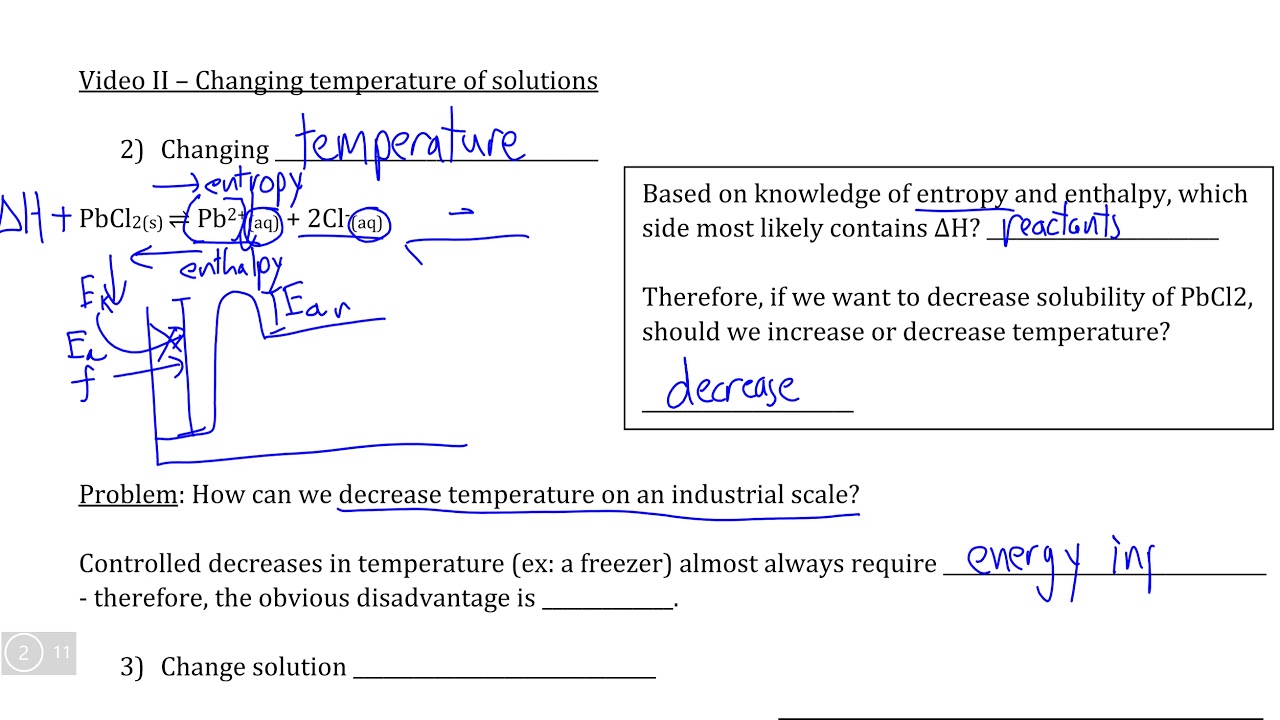 Video II – Changing temperature of solutions
2) Changing temperature
→ entropy
ΔH + PbCl2(s) ⇌ Pb2+(aq) + 2Cl-(aq)
enthalpy
Ek ↓
Ea r
Ea
f
Based on knowledge of entropy and enthalpy, which
side most likely contains ΔH? reactants
Therefore, if we want to decrease solubility of PbCl2,
should we increase or decrease temperature?
decrease
Problem: How can we decrease temperature on an industrial scale?
Controlled decreases in temperature (ex: a freezer) almost always require energy inp
- therefore, the obvious disadvantage is ___________.
3) Change solution _________________________
2 11